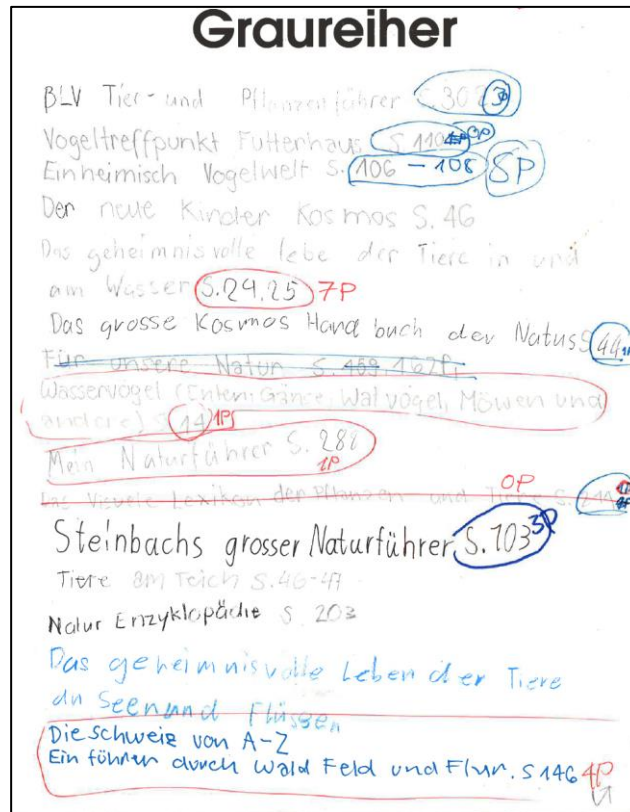 Graureiher
BLV Tier- und Pflanzenführer S. 302
Vogeltreffpunkt Futterhaus S. 110 3P
Einheimisch Vogelwelt S. 106 - 108 8P
Der neue Kinder Kosmos S. 46
Das geheimnisvolle lebe der Tiere in und
am Wasser S. 24, 25 7P
Das grosse Kosmos Handbuch der Natur S 44
Für unsere Natur S. 162f,
Wasservögel (Enten, Gänse, Watvögel, Möwen und
andere) S 14 1P
Mein Naturführer S. 288
1P
0P
Das Visuele Lexikon der Pflanzen und Tiere S.
Steinbachs grosser Naturführer S. 103 3P
Tiere am Teich S. 46-47
Natur Enzyklopädie S 203
Das geheimnisvolle Leben der Tiere
an Seen und Flüssen
Die schweiz von A-Z
Ein führen durch Wald Feld und Flur. S 146 4P